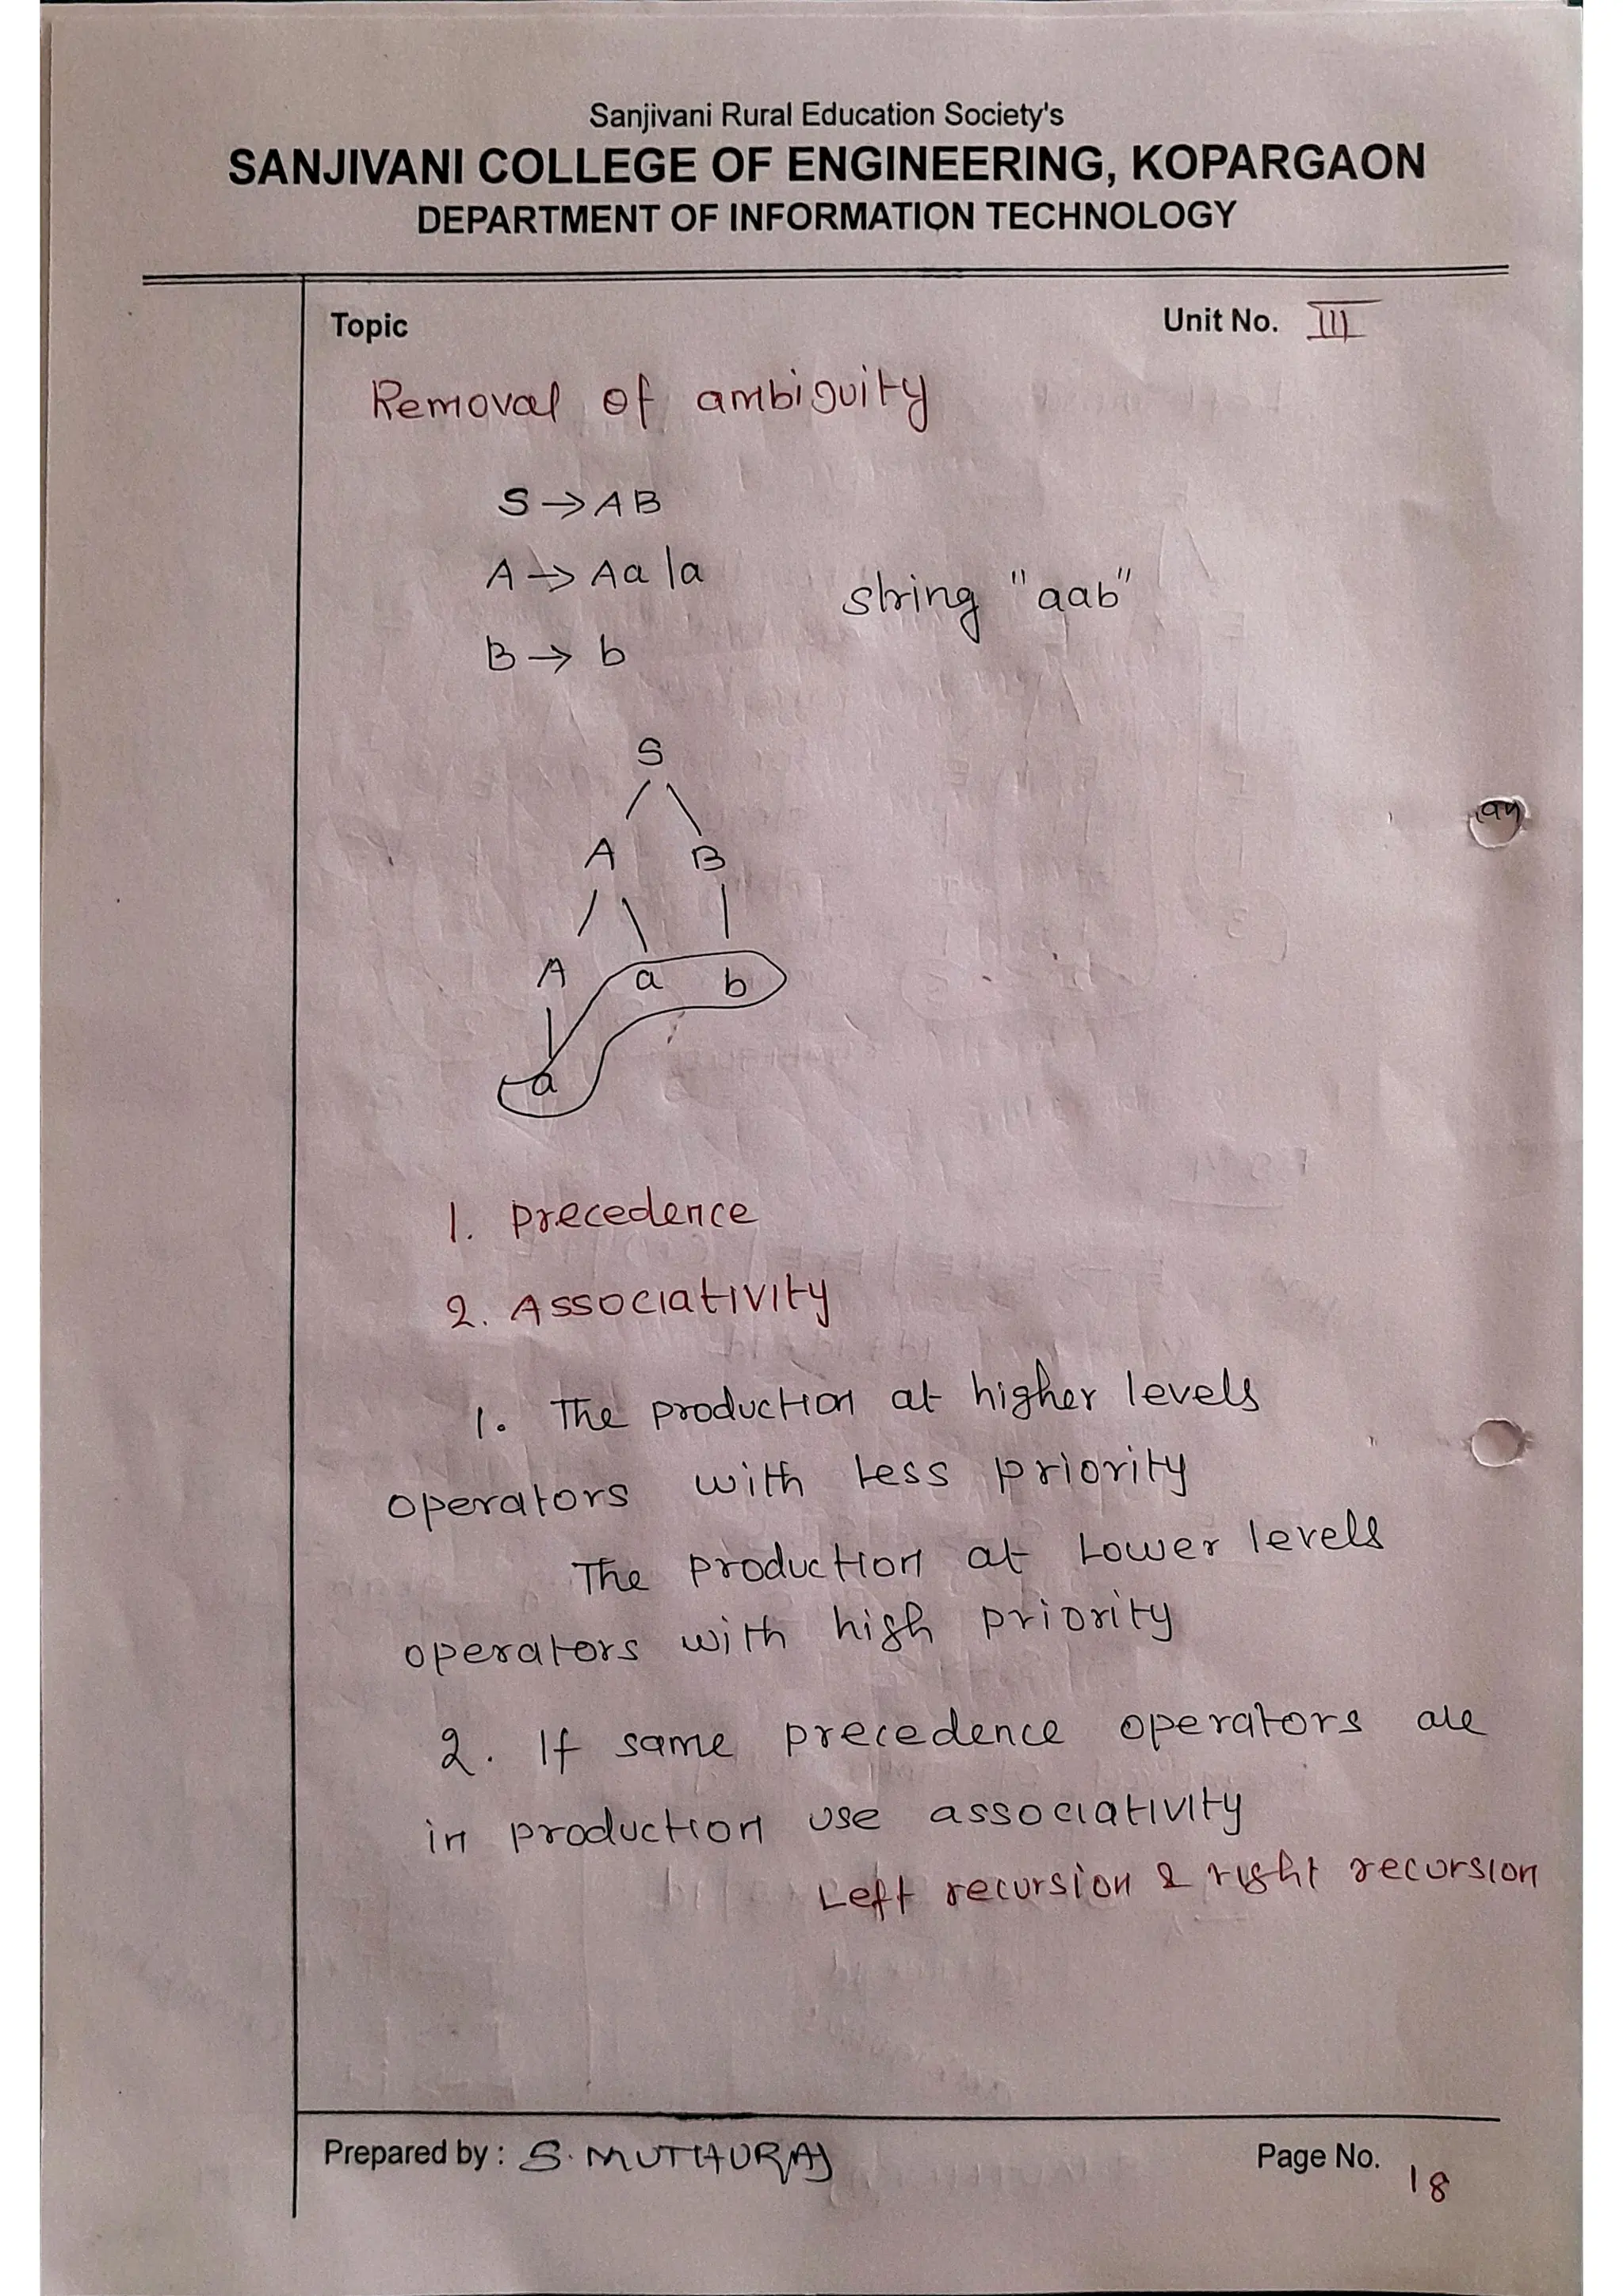 Sanjivani Rural Education Society's
SANJIVANI COLLEGE OF ENGINEERING, KOPARGAON
DEPARTMENT OF INFORMATION TECHNOLOGY
Topic Unit No. III
Removal of ambiguity
S → AB
A → Aa | a
string "aab"
B → b
S
A B
A a b
a
1. precedence
2. Associativity
1. The production at higher levels
operators with less priority
The production at Lower levels
operators with high priority
2. If same precedence operators are
in production use associativity
Left recursion & right recursion
Prepared by : S. MUTHURAJ Page No. 18